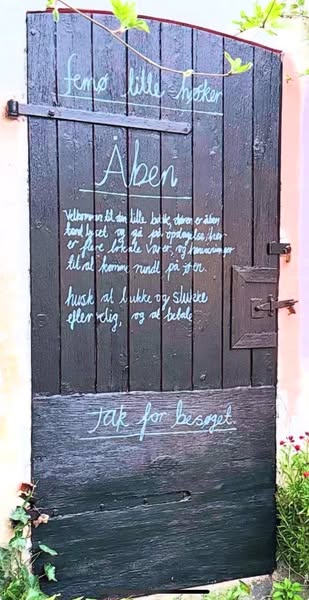 femø lille høker
Åben
Velkommen til den lille butik, døren er åben
tænd lyset og gå på opdagelse, her
er flere lokale varer, og henvisninger
til at komme rundt på øen.
husk at lukke og slukke
efter dig, og at betale
Tak for besøget.